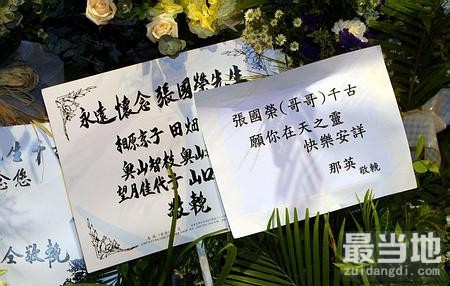 念您
敬輓
永遠懷念張國榮先生
相原京子 田畑
奧山智枝 奧山
望月佳代子 山口
敬輓
張國榮(哥哥)千古
願你在天之靈
快樂安詳
那英 敬輓
最当地
zuidangdi.com